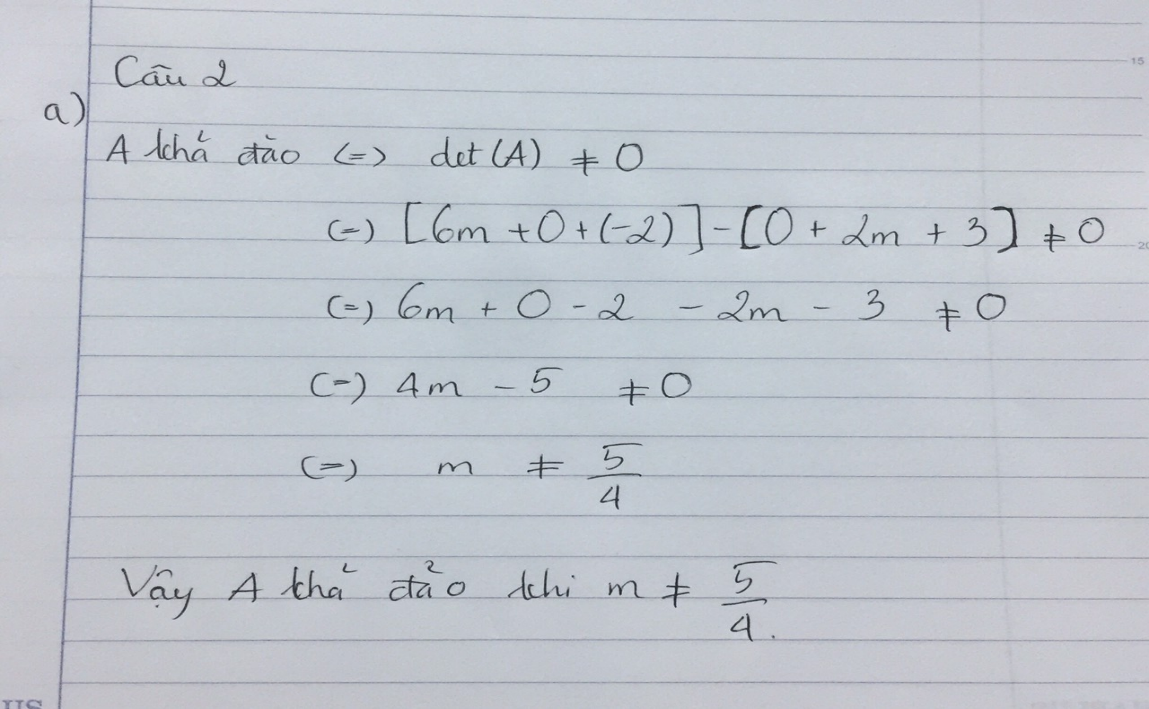 Câu 2
a)
A khả đảo (=) det(A) ≠ 0
(=) [6m + 0 + (-2)] - [0 + 2m + 3] ≠ 0
(=) 6m + 0 - 2 - 2m - 3 ≠ 0
(=) 4m - 5 ≠ 0
(=) m ≠ 5/4
Vậy A khả đảo khi m ≠ 5/4.
15
20